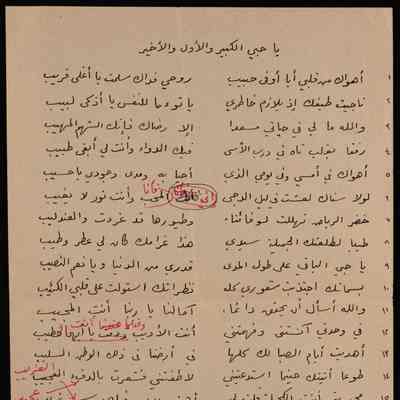 يا حبي الكبير والأول والأخير
١ أهواك من قلبي أيا أوفى حبيب روحي فداك سلمت يا أغلى قريب
٢ ناجيت طيفك إذ يلازم خاطري يا توءما للنفس يا أذكى لبيب
٣ والله ما لي في حياتي مسعدا إلا رضاك فإنك الشهم المهيب
٤ رفقا بقلب تاه في درب الأسى فيك الدواء وأنت لي أبقى طبيب
٥ أهواك في أمسي وفي يومي الذي أحيا به وغدي وجودي يا حسيب
٦ لولا سناك لعشت في ليل الدجى المحب وأنت نور لا يغيب
٧ خضر الرياض تهللت لوفائنا وطيورها قد غردت والعندليب
٨ طيبا لطلعتك الجميلة سيدي هذا غرامك كان لي عطر وطيب
٩ يا حبي الباقي على طول المدى قدري من الدنيا ويا نعم النصيب
١٠ بسماتك اجتذبت شعوري كله نظراتك استولت على قلبي الكئيب
١١ والله أسأل أن يحقق دائما آمالنا يا ربنا أنت المجيب
١٢ في وحدتي آنستني وفهمتني أنت الأديب يا أيها الخطيب
١٣ أهديت أيام الصبا لك كلها في أرضنا في ذلك الوطن السليب
١٤ طوعا أتيتك حينما استدعيتني لاطفتني فشعرت بالدفء العجيب